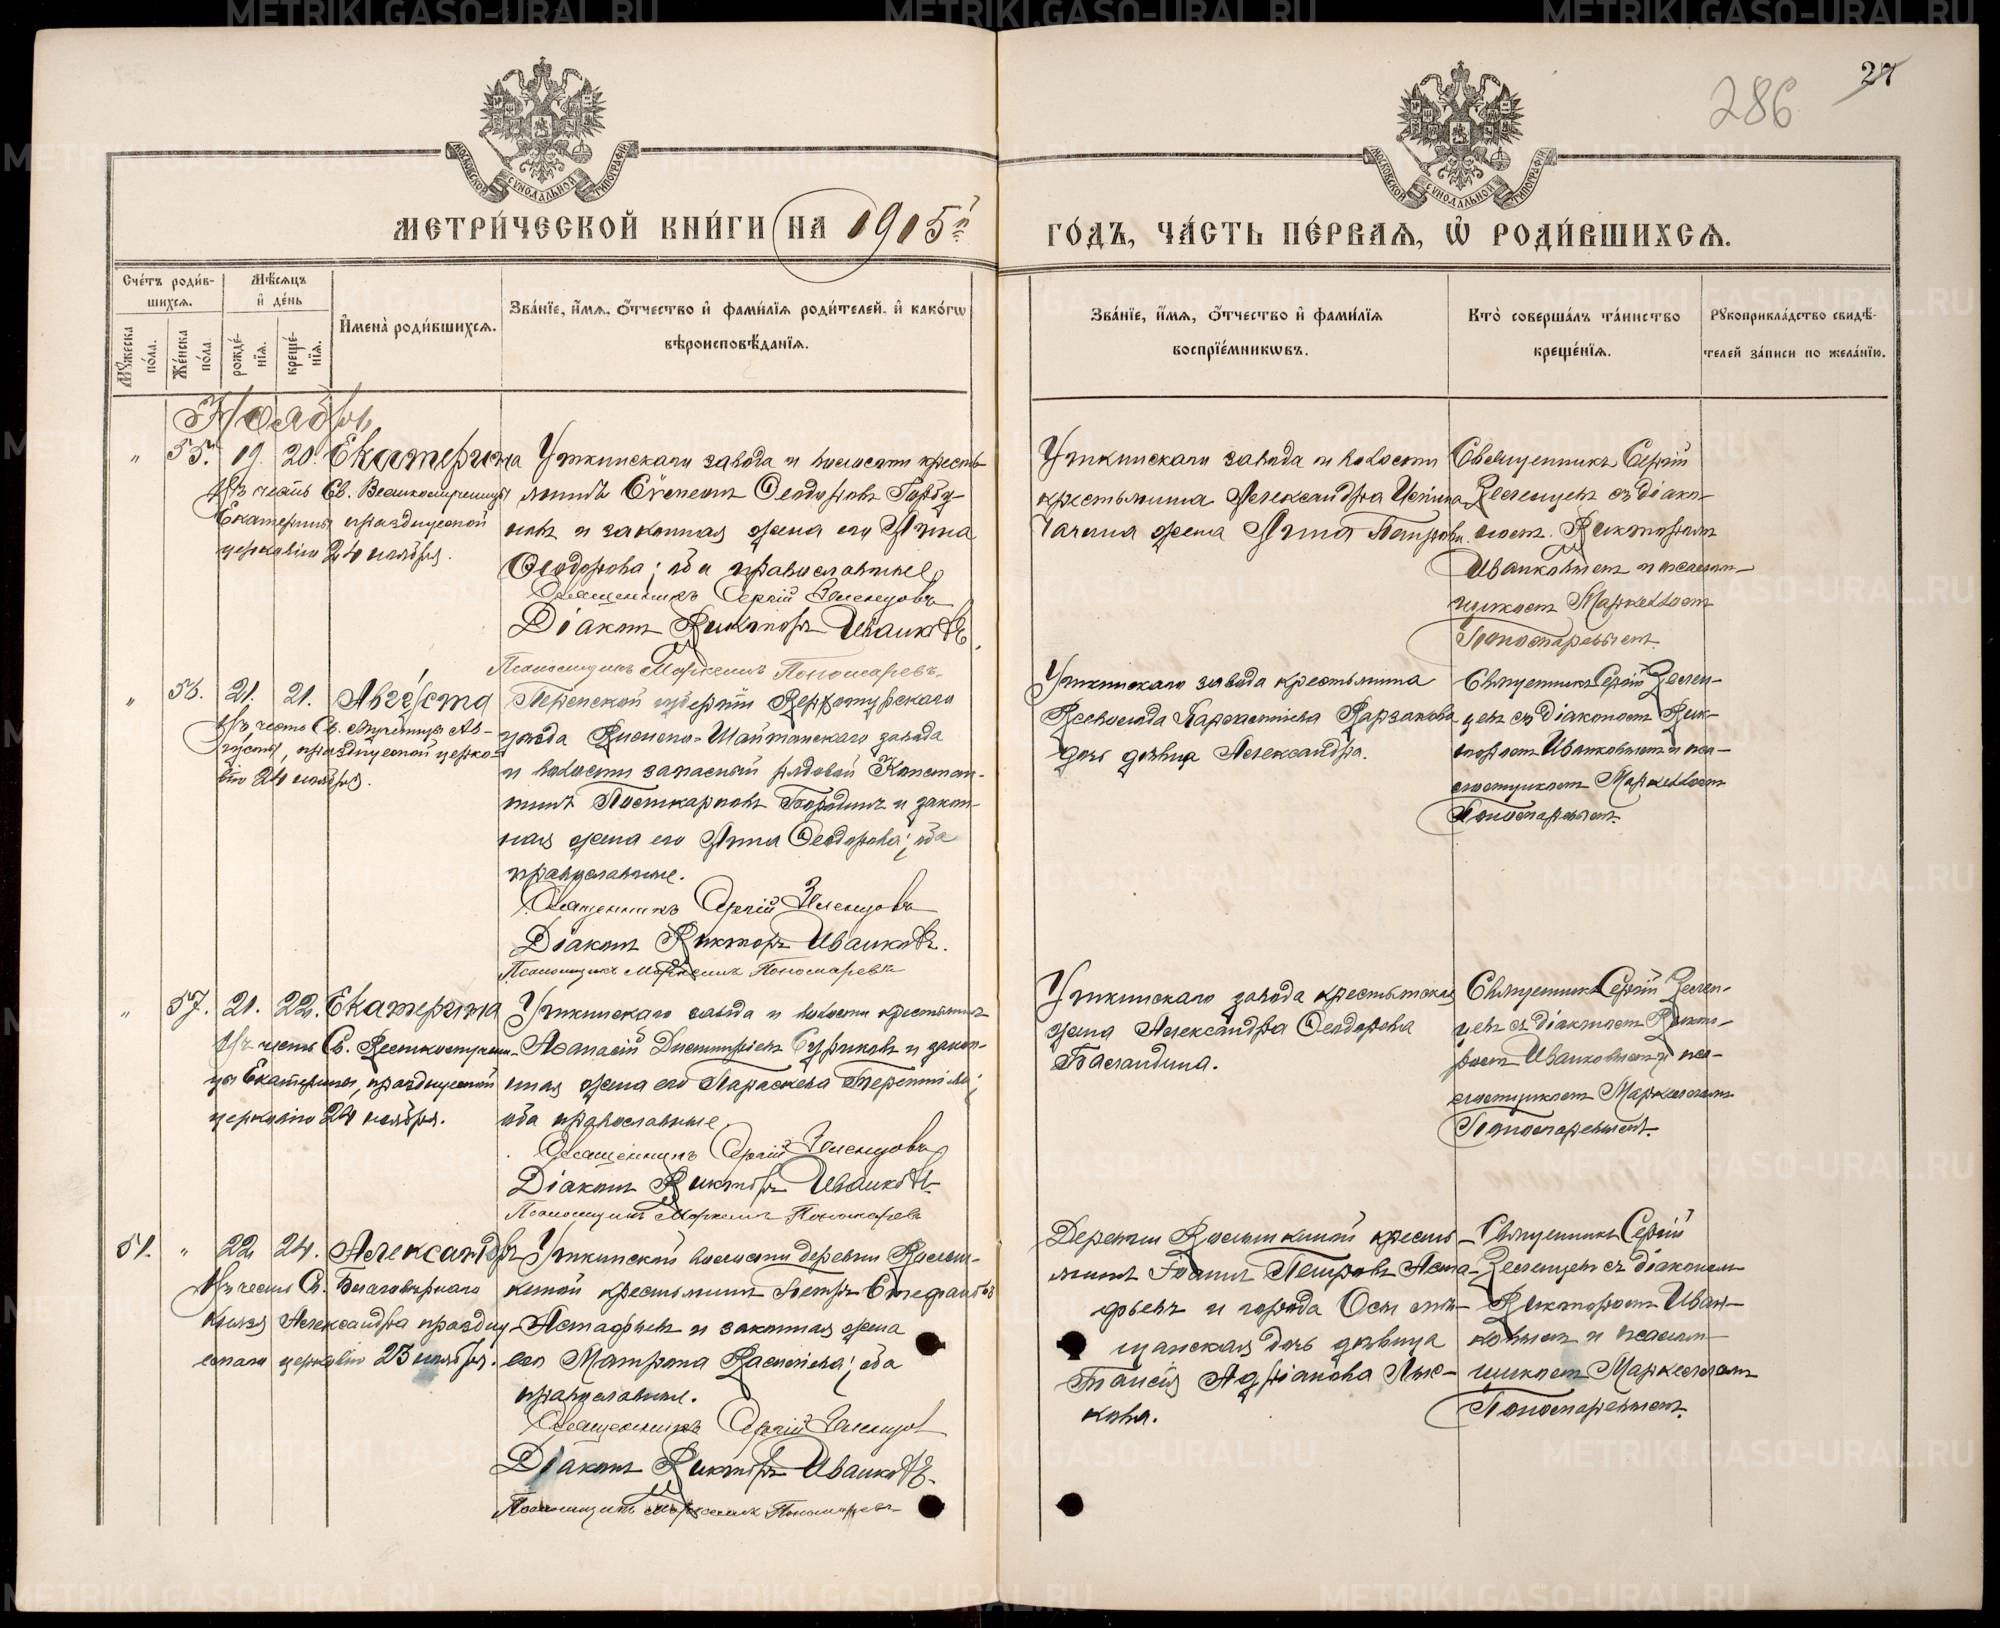 286
27
МОСКОВСКОЙ СѴНОДАЛЬНОЙ ТИПОГРАФІИ
МОСКОВСКОЙ СѴНОДАЛЬНОЙ ТИПОГРАФІИ
МЕТРИ́ЧЕСКОЙ КНИ́ГИ НА 1905й
ГО́ДЪ, ЧА́СТЬ ПЕ́РВАѦ, Ѡ҆ РОДИ́ВШИХСѦ.
Сче́тъ роди́в-
шихсѧ.
Мѣ́сѧцъ
и҆ де́нь
Мꙋ́жеска по́ла.
Же́нска по́ла.
рожде́-нїѧ.
креще́-нїѧ.
И҆мена̀ роди́вшихсѧ.
Зва́нїе, и҆́мѧ, ѻ҆́тчество и҆ фами́лїѧ роди́телей, и҆ како́гѡ
вѣроисповѣ́данїѧ.
Зва́нїе, и҆́мѧ, ѻ҆́тчество и҆ фами́лїѧ
воспрїе́мникѡвъ.
Кто̀ соверша́лъ та́инство
креще́нїѧ.
Рꙋкоприкла́дство свидѣ́-
телей за́писи по жела́нїю.
Ноябрь
" 55. 19. 20. Екатерина
Въ честь Св. Великомученицы
Екатерины празднуемой
церковію 24 ноября.
Уткинскаго завода и волости кресть-
янинъ Ѳеодоровъ Горбу-
новъ и законная жена его Анна
Ѳеодорова; оба православные
Священникъ Сергій Зеленцовъ
Діаконъ Викторъ Иванковъ.
Псаломщикъ Маркеллъ Пономаревъ.
Уткинскаго завода и волости
крестьянина Александра
жена Анна Петрова.
Священникъ Сергій
Зеленцевъ съ діако-
номъ Викторомъ
Иванковымъ и псалом-
щикомъ Маркелломъ
Пономаревымъ.
" 56. 21. 21. Августа
Въ честь Св. мученицы Ав-
густы, празднуемой церко-
вію 24 ноября.
Пермской губерніи Верхотурскаго
уѣзда Висимо-Шайтанскаго завода
и волости запасный рядовой Констан-
тинъ Поликарповъ Бородинъ и закон-
ная жена его Анна Ѳеодорова; оба
православные.
Священникъ Сергій Зеленцовъ
Діаконъ Викторъ Иванковъ.
Псаломщикъ Маркеллъ Пономаревъ
Уткинскаго завода крестьянина
Всеволода
дочь дѣвица Александра.
Священникъ Сергій Зелен-
цевъ съ діакономъ Вик-
торомъ Иванковымъ и пса-
ломщикомъ Маркелломъ
Пономаревымъ.
" 57. 21. 22. Екатерина
Въ честь Св. Великомучени-
цы Екатерины, празднуемой
церковію 24 ноября.
Уткинскаго завода и волости крестьянинъ
Аѳанасій Димитріевъ Суриковъ и закон-
ная жена его Параскева Терентіева;
оба православные
Священникъ Сергій Зеленцовъ
Діаконъ Викторъ Иванковъ.
Псаломщикъ Маркеллъ Пономаревъ
Уткинскаго завода крестьянская
жена Александра Ѳеодорова
Баландина.
Священникъ Сергій Зелен-
цевъ съ діакономъ Викто-
ромъ Иванковымъ и пса-
ломщикомъ Маркелломъ
Пономаревымъ.
51. " 22. 24. Александръ
Въ честь Св. Благовѣрнаго
Князя Александра праздну-
емаго церковію 23 ноября.
Уткинской волости деревни
крестьянинъ Петръ Стефановъ
Астафьевъ и законная жена
его Матрона Василіева; оба
православные.
Священникъ Сергій Зеленцов
Діаконъ Викторъ Иванковъ.
Псаломщикъ Маркеллъ Пономаревъ
Деревни кресть-
янинъ Іоаннъ Петровъ Аста-
фьевъ и города Осы мѣ-
щанская дочь дѣвица
Таисія Адріанова Лыс-
кова.
Священникъ Сергій
Зеленцевъ съ діакономъ
Викторомъ Иван-
ковымъ и псалом-
щикомъ Маркелломъ
Пономаревымъ.